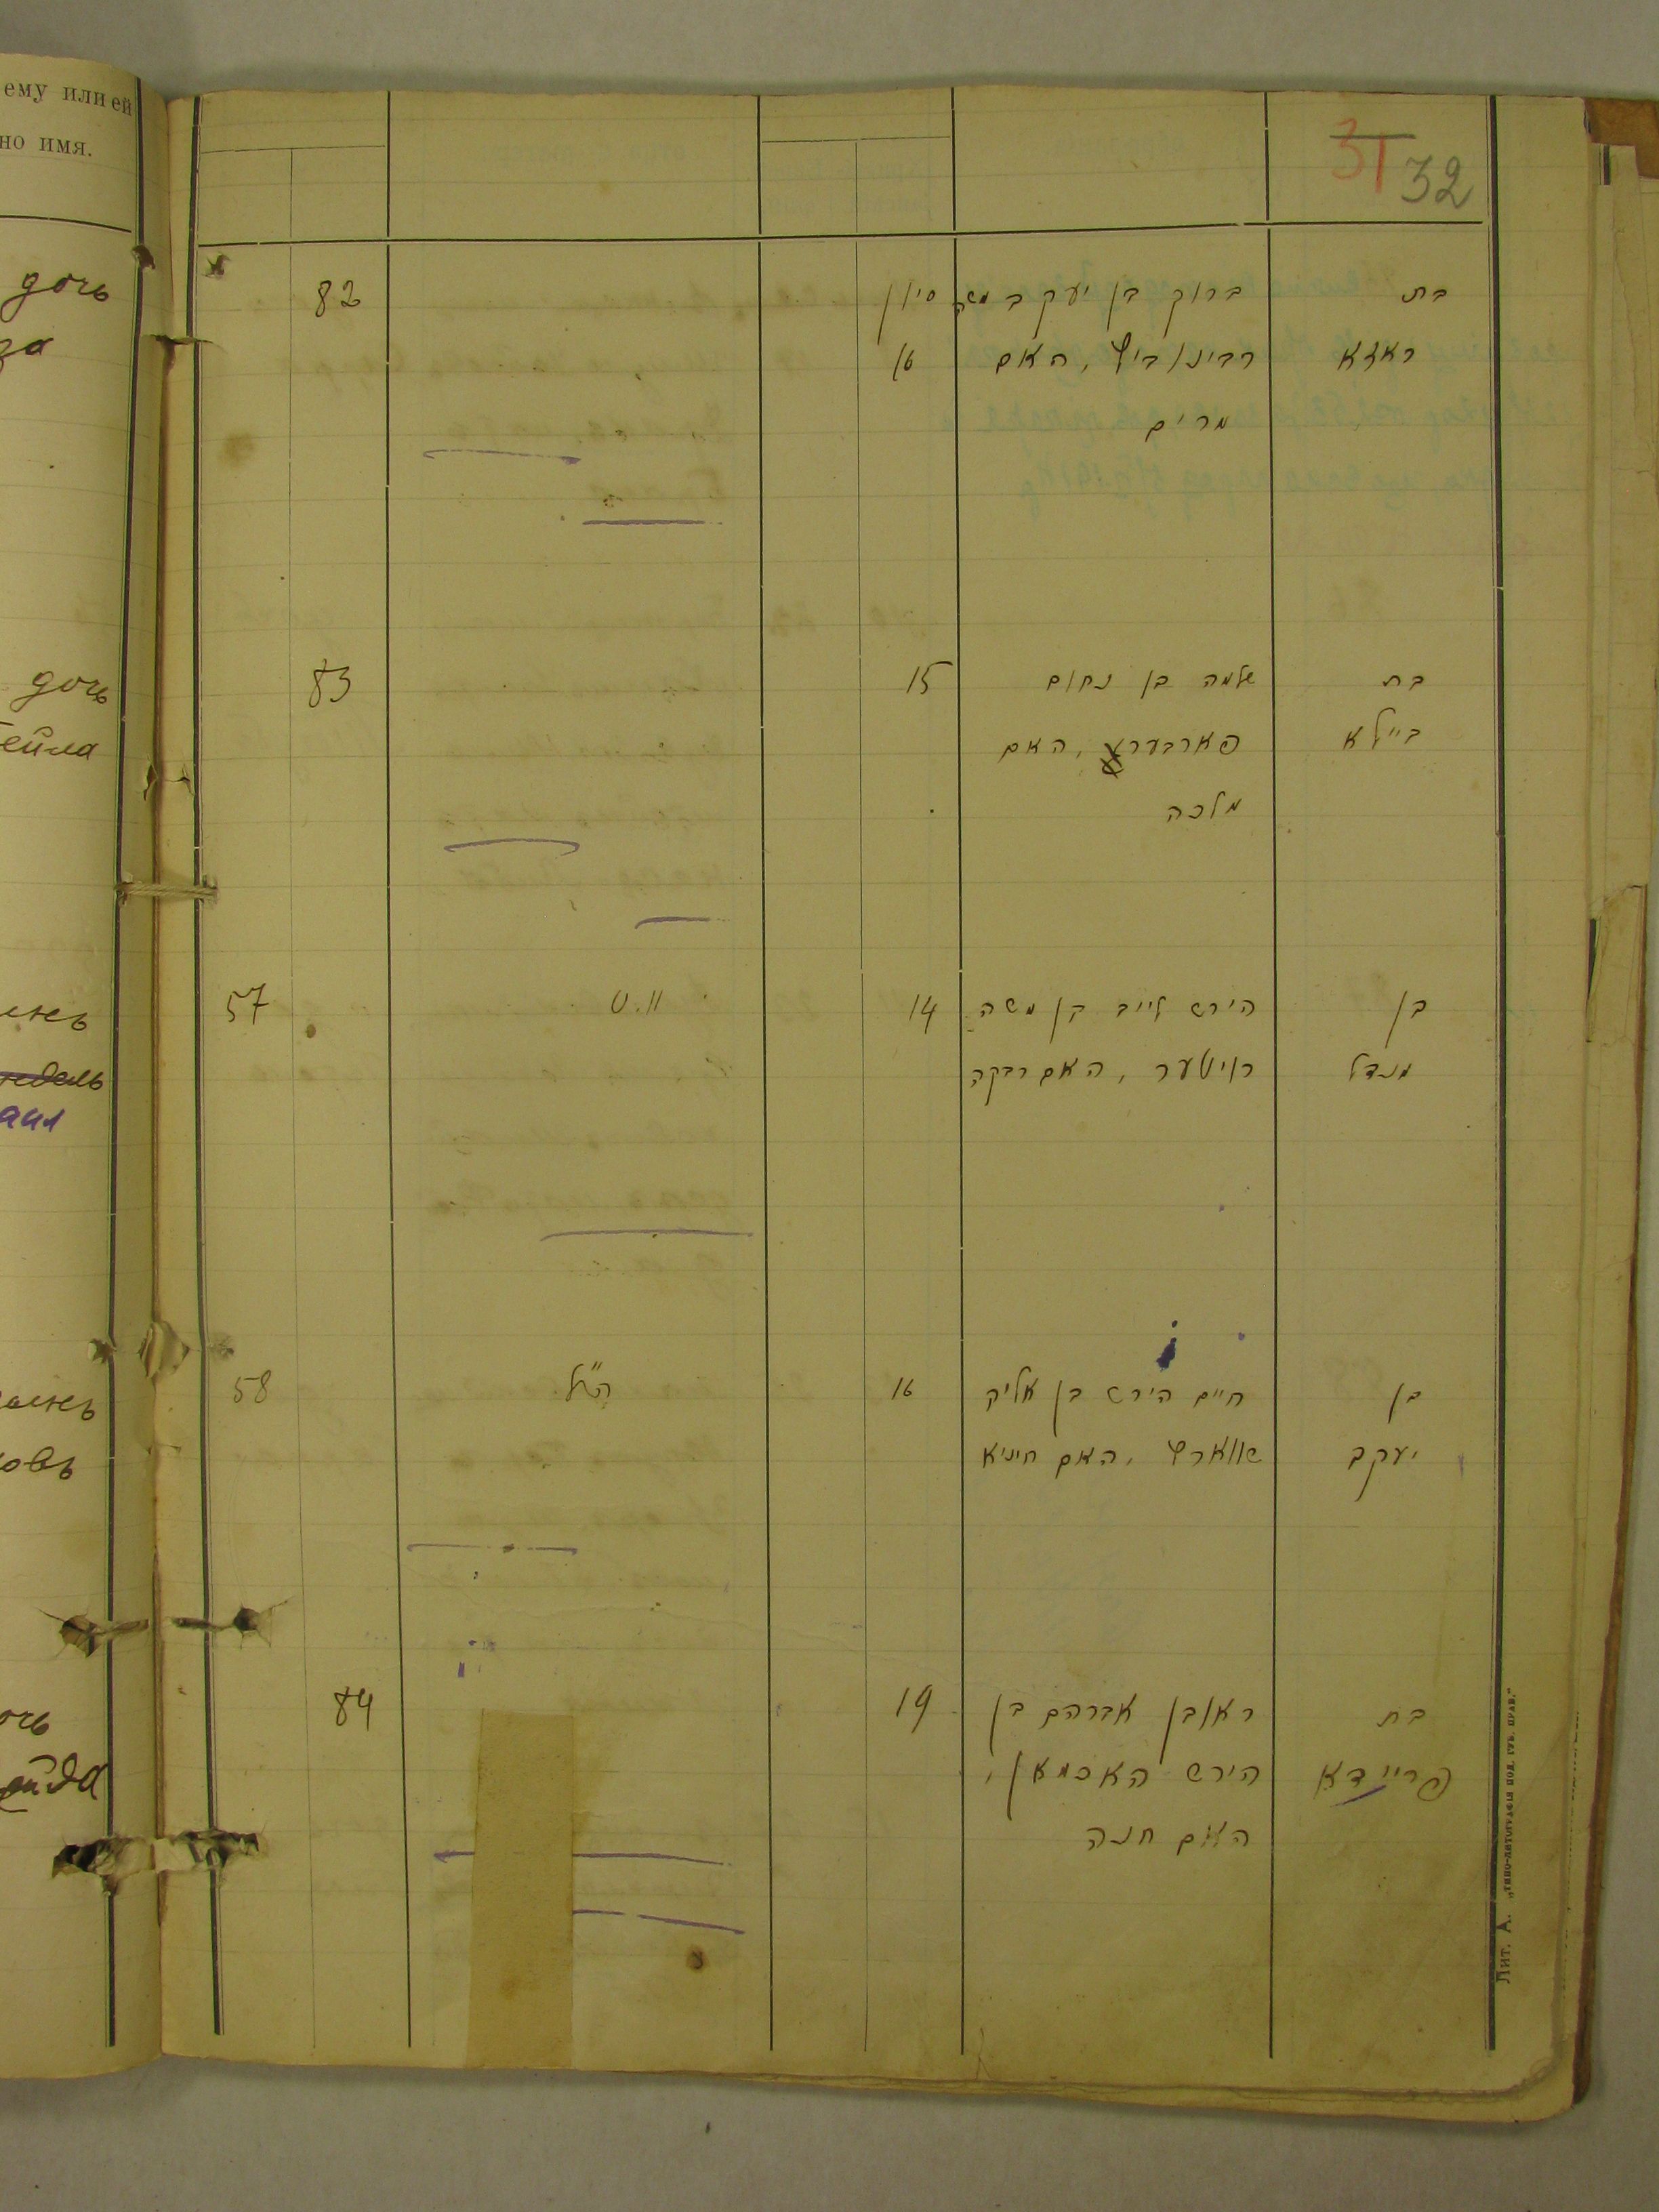 ему или ей
но имя.
31 32
дочь
за
82
סיון
16
ברוך בן יעקב משה
רבינוביץ, האם
מרים
בת
ראזא
дочь
ейла
83
15
שלמה בן נחום
פארבער, האם
מלכה
בת
ביילא
57
14
הירש לייב בן משה
רויטער, האם רבקה
בן
מנדל
аил
58
הנ"ל
16
חיים הירש בן אליק
שווארץ, האם חיניא
בן
יעקב
овъ
84
19
ראובן אברהם בן
הירש האכמאן,
האם חנה
בת
פריידא
Лит. А. „типо-литографія под. губ. прав.“